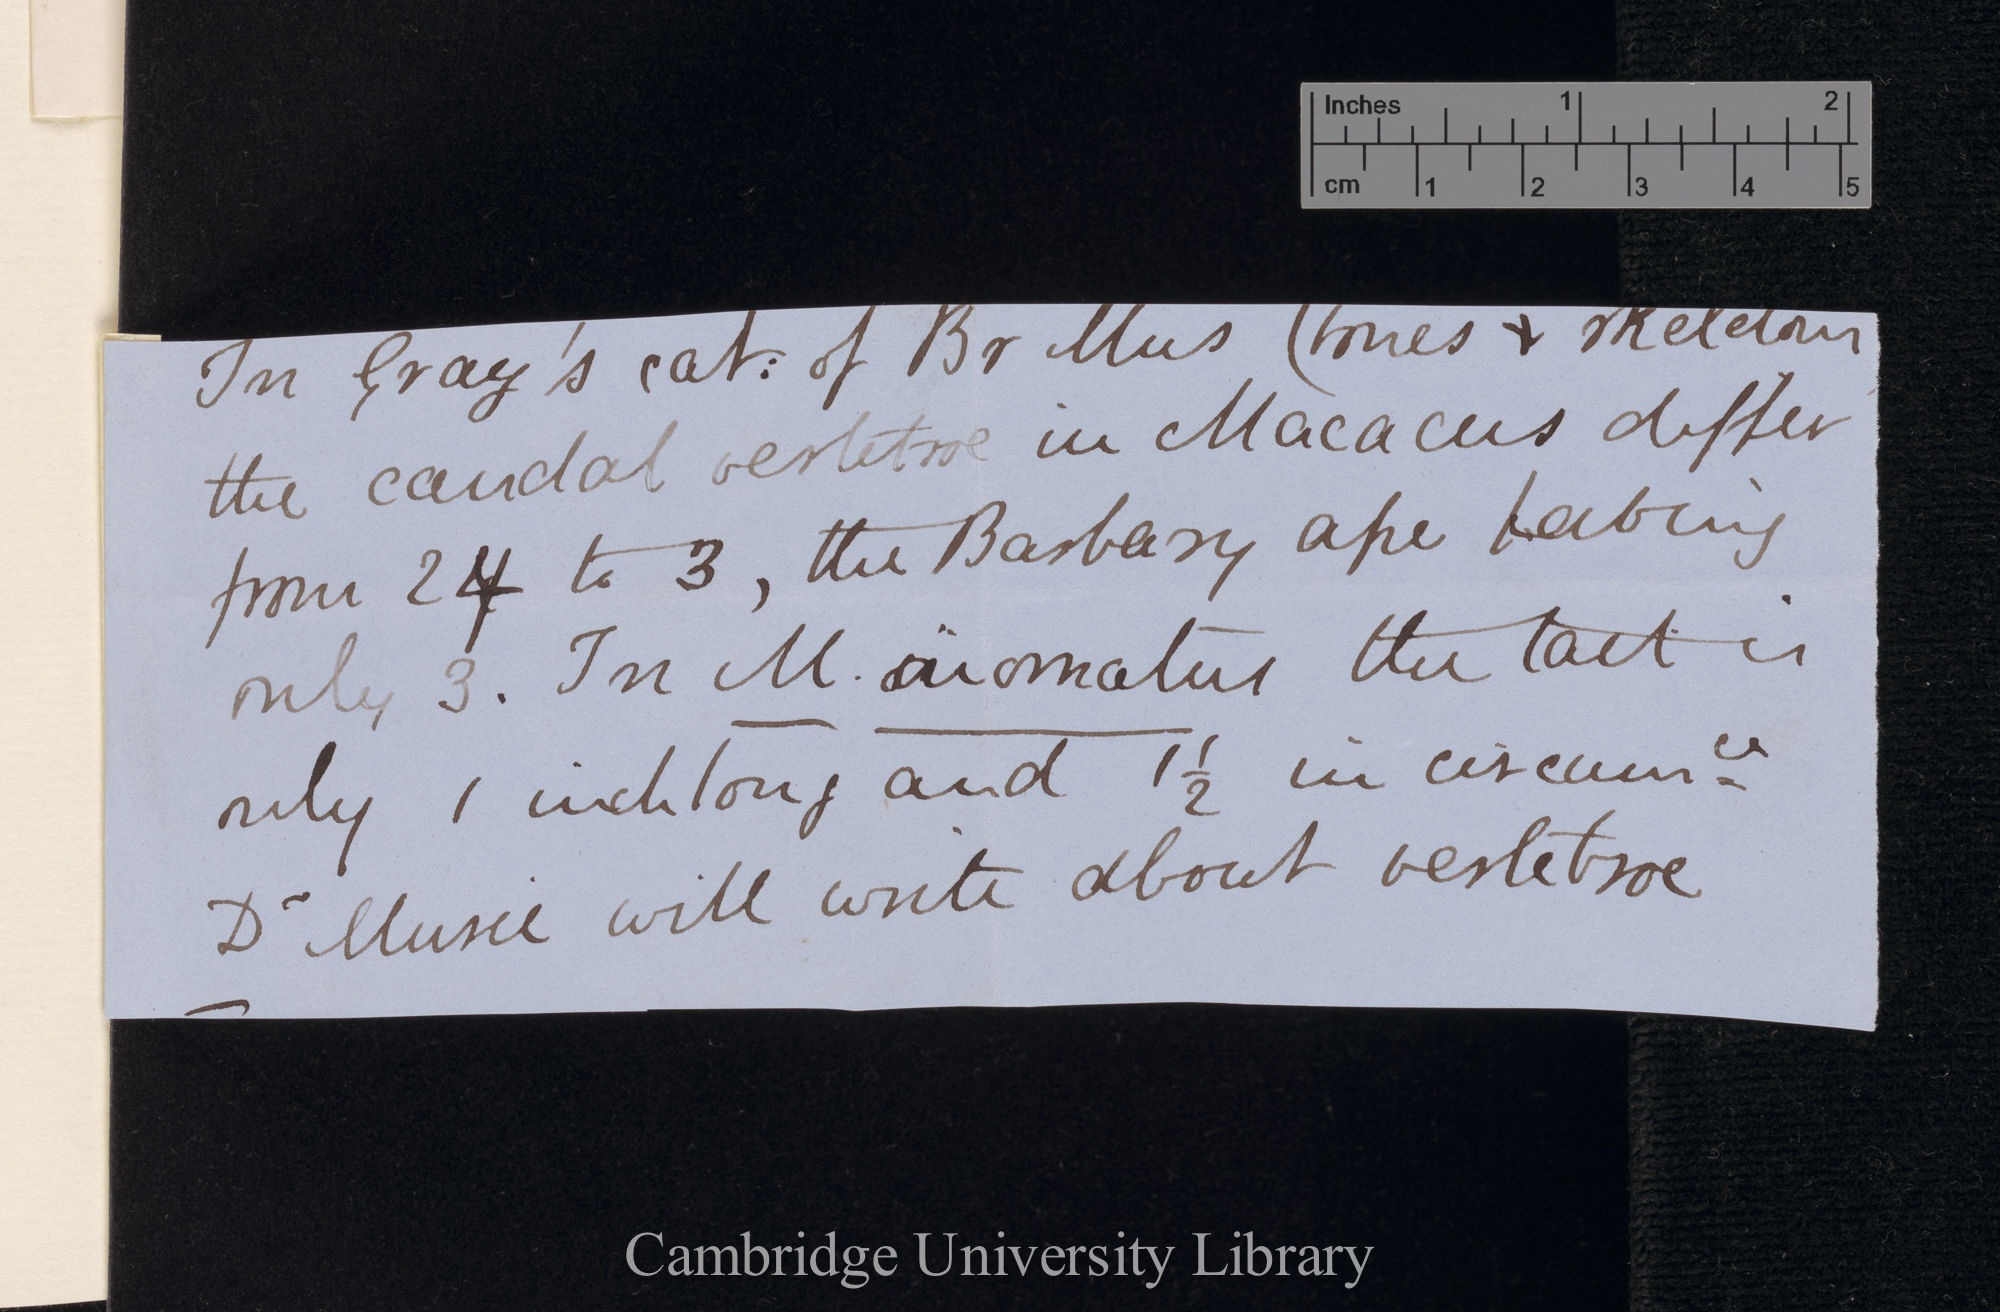 Inches 1 2
cm 1 2 3 4 5
In Gray's cat: of Br Mus (bones & skeletons
the caudal vertebræ in Macacus differ
from 24 to 3, the Barbary ape having
only 3. In M. inornatus the tail is
only 1 inch long and 1½ in circumce
Dr Murie will write about vertebræ
Cambridge University Library